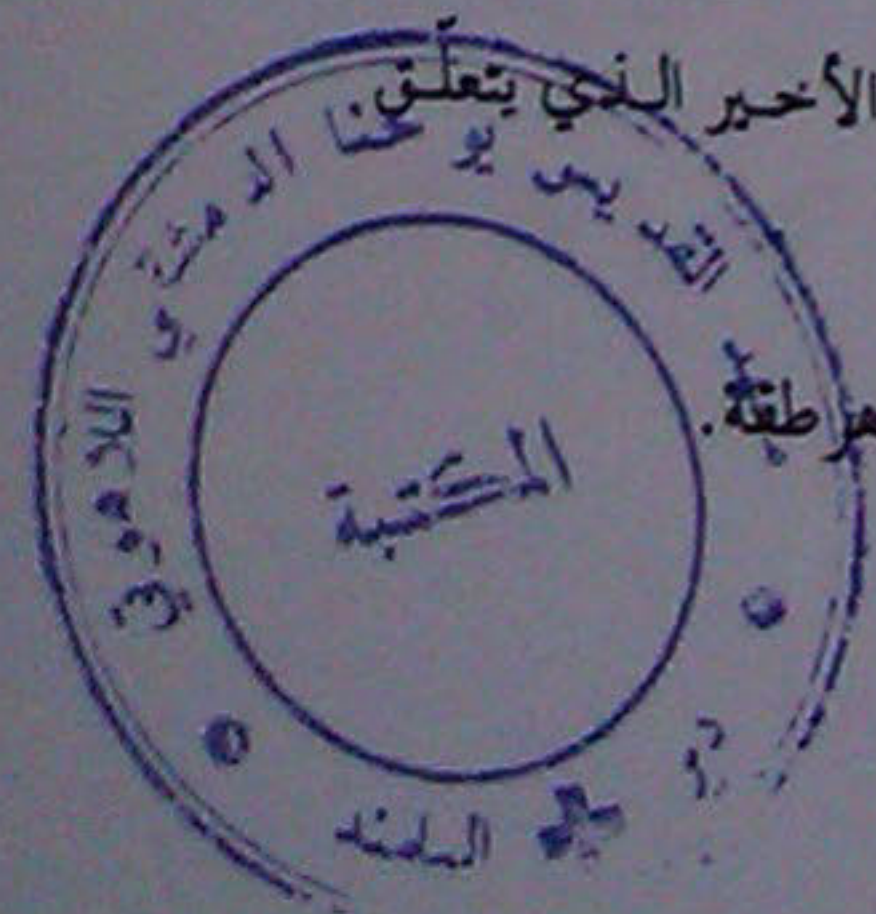 الأخير الذي يتعلّق.
هرطقة.
معهد القديس يوحنا الدمشقي اللاهوتي
المكتبة
دير البلمند